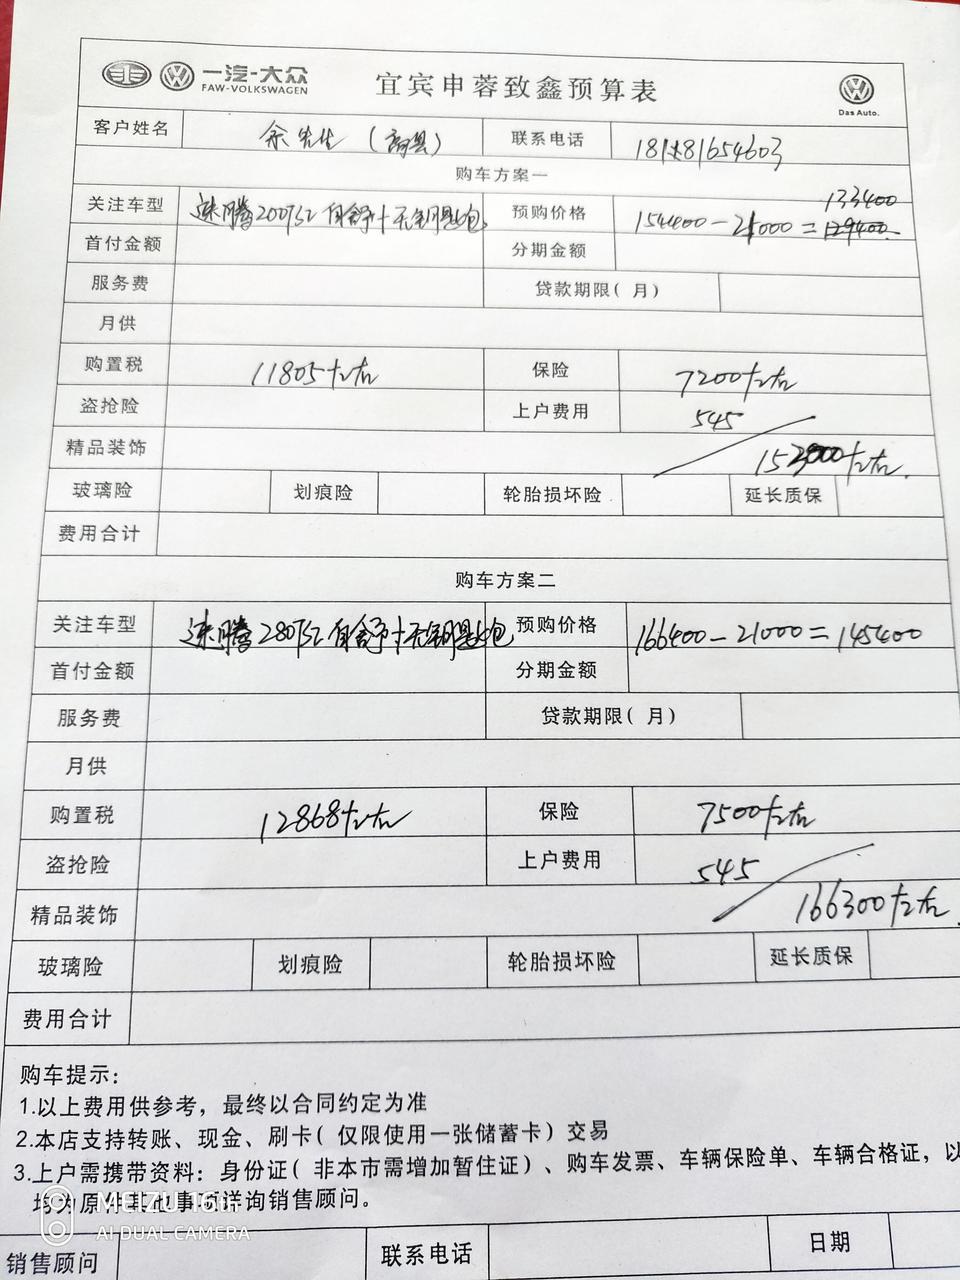 一汽-大众
FAW-VOLKSWAGEN
宜宾申蓉致鑫预算表
Das Auto.
客户姓名 余先生(高县) 联系电话
购车方案一
关注车型 速腾200TSI 自舒+无钥匙包 预购价格 154400-21000=129400 133400
首付金额 分期金额
服务费 贷款期限(月)
月供
购置税 11805左右 保险 7200左右
盗抢险 上户费用 545
精品装饰 153000左右.
玻璃险 划痕险 轮胎损坏险 延长质保
费用合计
购车方案二
关注车型 速腾280TSI 自舒+无钥匙包 预购价格 166400-21000=145400
首付金额 分期金额
服务费 贷款期限(月)
月供
购置税 12868左右 保险 7500左右
盗抢险 上户费用 545
精品装饰 166300左右.
玻璃险 划痕险 轮胎损坏险 延长质保
费用合计
购车提示:
1.以上费用供参考，最终以合同约定为准
2.本店支持转账、现金、刷卡(仅限使用一张储蓄卡)交易
3.上户需携带资料：身份证(非本市需增加暂住证)、购车发票、车辆保险单、车辆合格证，以
均为原件其他事项详询销售顾问。
MEIZU 16th
AI DUAL CAMERA
销售顾问 联系电话 日期